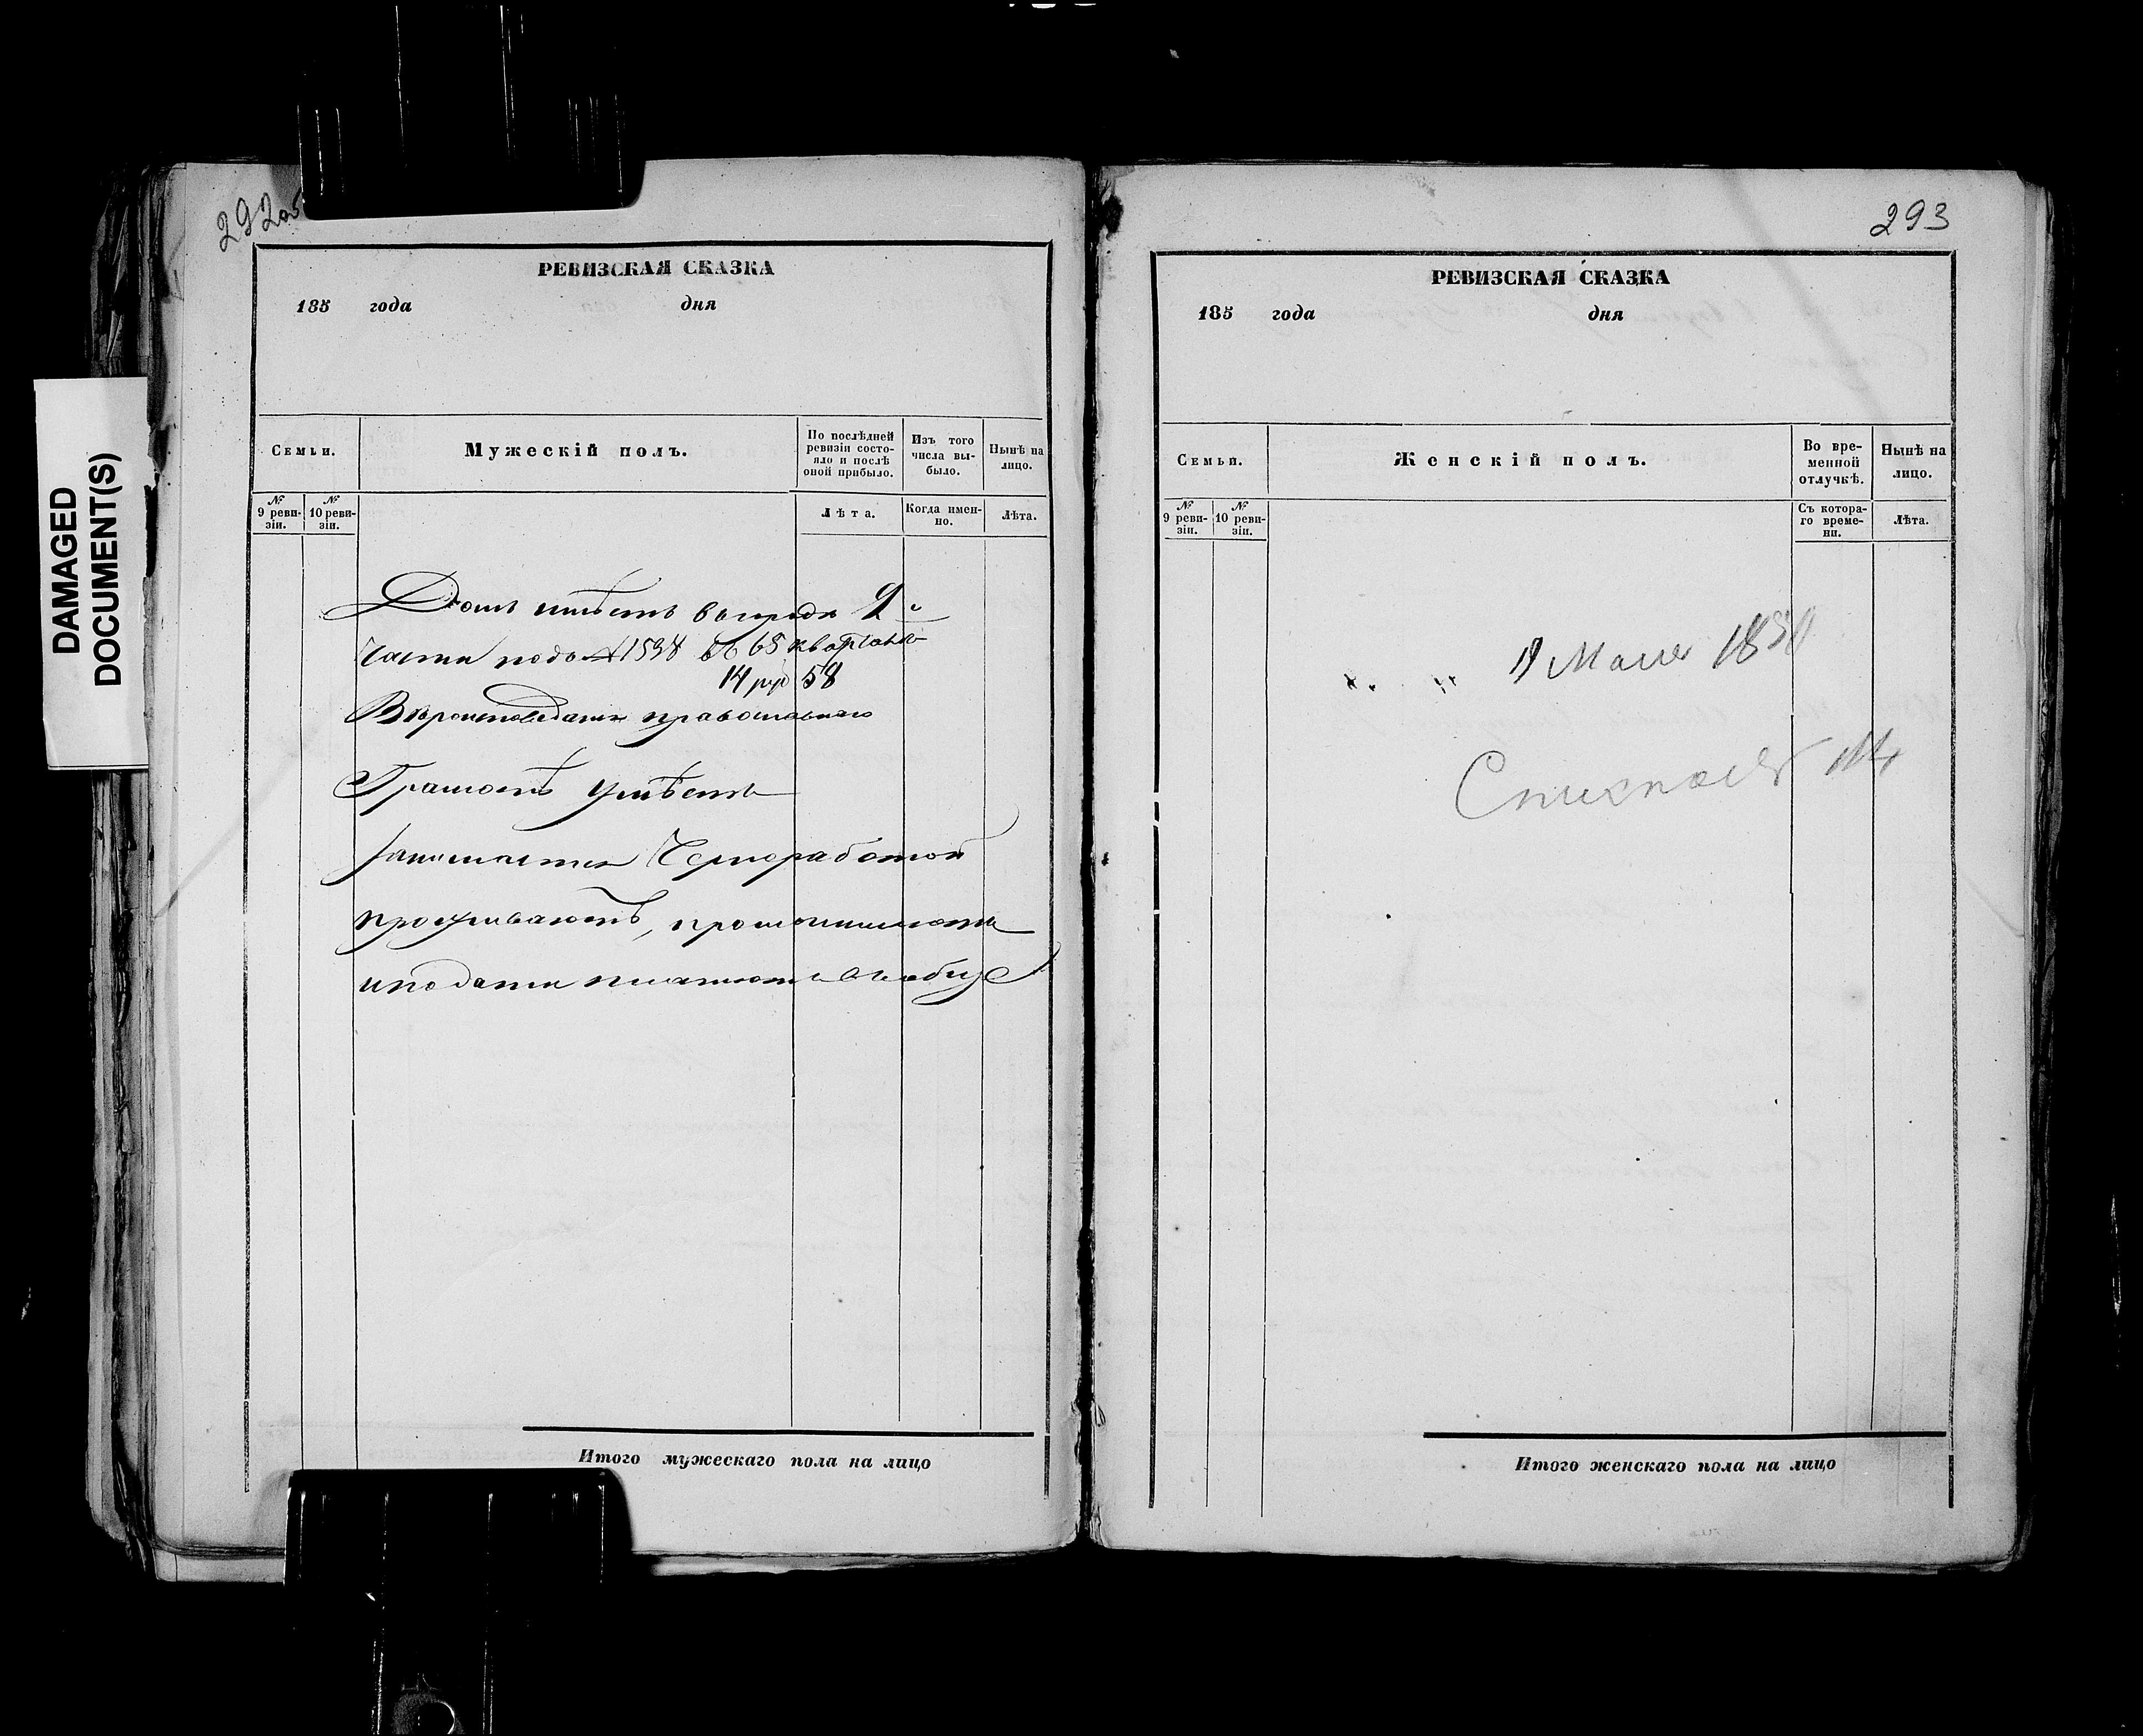 DAMAGED
DOCUMENT(S)
292об
РЕВИЗСКАЯ СКАЗКА
185 года дня
Семьи.
Мужескій полъ.
По послѣдней
ревизіи состо-
яло и послѣ
оной прибыло.
Изъ того
числа вы-
было.
Нынѣ на
лицо.
№
9 реви-
зіи.
№
10 реви-
зіи.
Лѣта.
Когда имен-
но.
Лѣта.
Домъ имѣетъ въ городѣ 2й
части подъ №1598 въ 65 кварталѣ
14 руб 58
Вѣроисповеданія православнаго
Грамотѣ умѣетъ
Занимается Чернработой
проживаютъ,
и подати
Итого мужескаго пола на лицо
293
РЕВИЗСКАЯ СКАЗКА
185 года дня
Семьи.
Женскій полъ.
Во вре-
менной
отлучкѣ.
Нынѣ на
лицо.
№
9 реви-
зіи.
№
10 реви-
зіи.
Съ котора-
го време-
ни.
Лѣта.
Маия
Итого женскаго пола на лицо